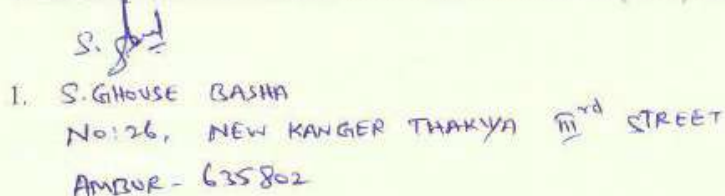 S.
1. S.GHOUSE BASHA
No:26, NEW KANGER THAKYA IIIrd STREET
AMBUR - 635802